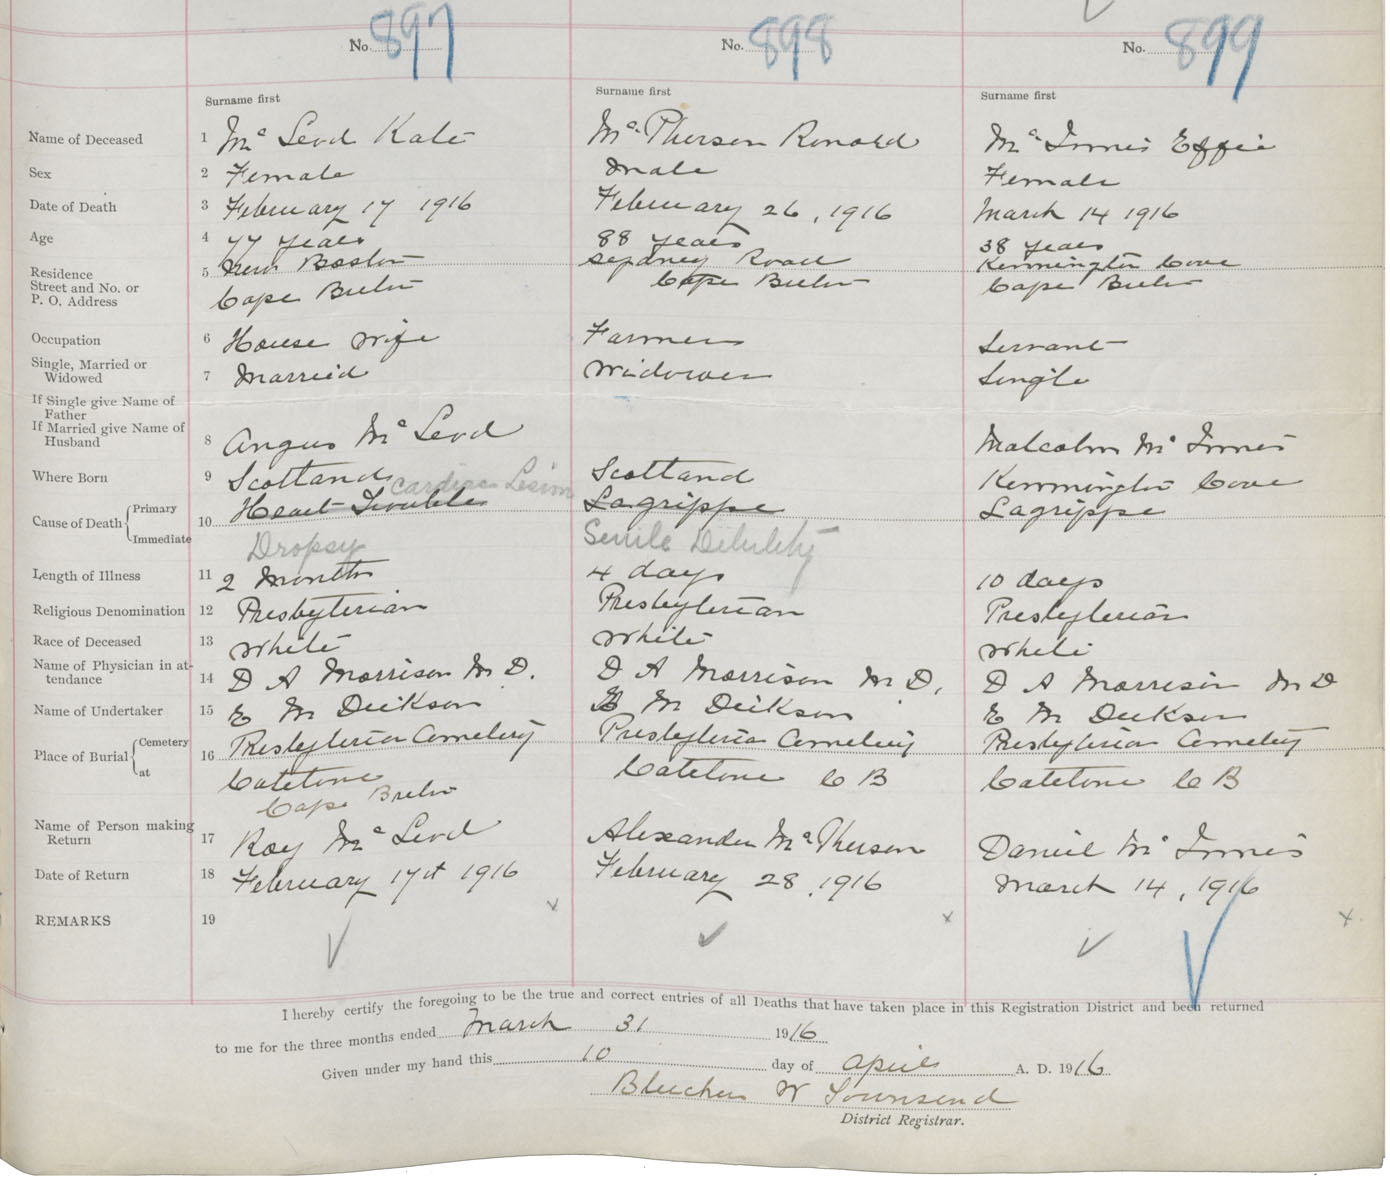 No. 897 No. 898 No. 899
Surname first Surname first Surname first
Name of Deceased 1 Mc Leod Kate Mc Pherson Ronald Mc Innis Effie
Sex 2 Female Male Female
Date of Death 3 February 17 1916 February 26, 1916 March 14 1916
Age 4 77 years 88 years 38 years
Residence 5 New Boston Sydney Road Kennington Cove
Street and No. or
P. O. Address Cape Breton Cape Breton Cape Breton
Occupation 6 House Wife Farmer Servant
Single, Married or
Widowed 7 Married Widower Single
If Single give Name of
Father
If Married give Name of
Husband 8 Angus Mc Leod Malcolm Mc Innis
Where Born 9 Scotland Scotland Kennington Cove
Cardiac Lesion
Cause of Death Primary 10 Heart Trouble Lagrippe Lagrippe
Immediate Dropsy Senile Debility
Length of Illness 11 2 Months 4 days 10 days
Religious Denomination 12 Presbyterian Presbyterian Presbyterian
Race of Deceased 13 White White White
Name of Physician in at-
tendance 14 D A Morrison M D. D A Morrison M D. D A Morrison M D
Name of Undertaker 15 E M Dickson E M Dickson E M Dickson
Place of Burial Cemetery 16 Presbyterian Cemetery Presbyterian Cemetery Presbyterian Cemetery
at Catelone Catelone C B Catelone C B
Cape Breton
Name of Person making
Return 17 Roy Mc Leod Alexander Mc Pherson Daniel Mc Innis
Date of Return 18 February 17th 1916 February 28, 1916 March 14, 1916
REMARKS 19
I hereby certify the foregoing to be the true and correct entries of all Deaths that have taken place in this Registration District and been returned
to me for the three months ended March 31 1916
Given under my hand this 10 day of April A. D. 1916
Blucher W Townsend
District Registrar.